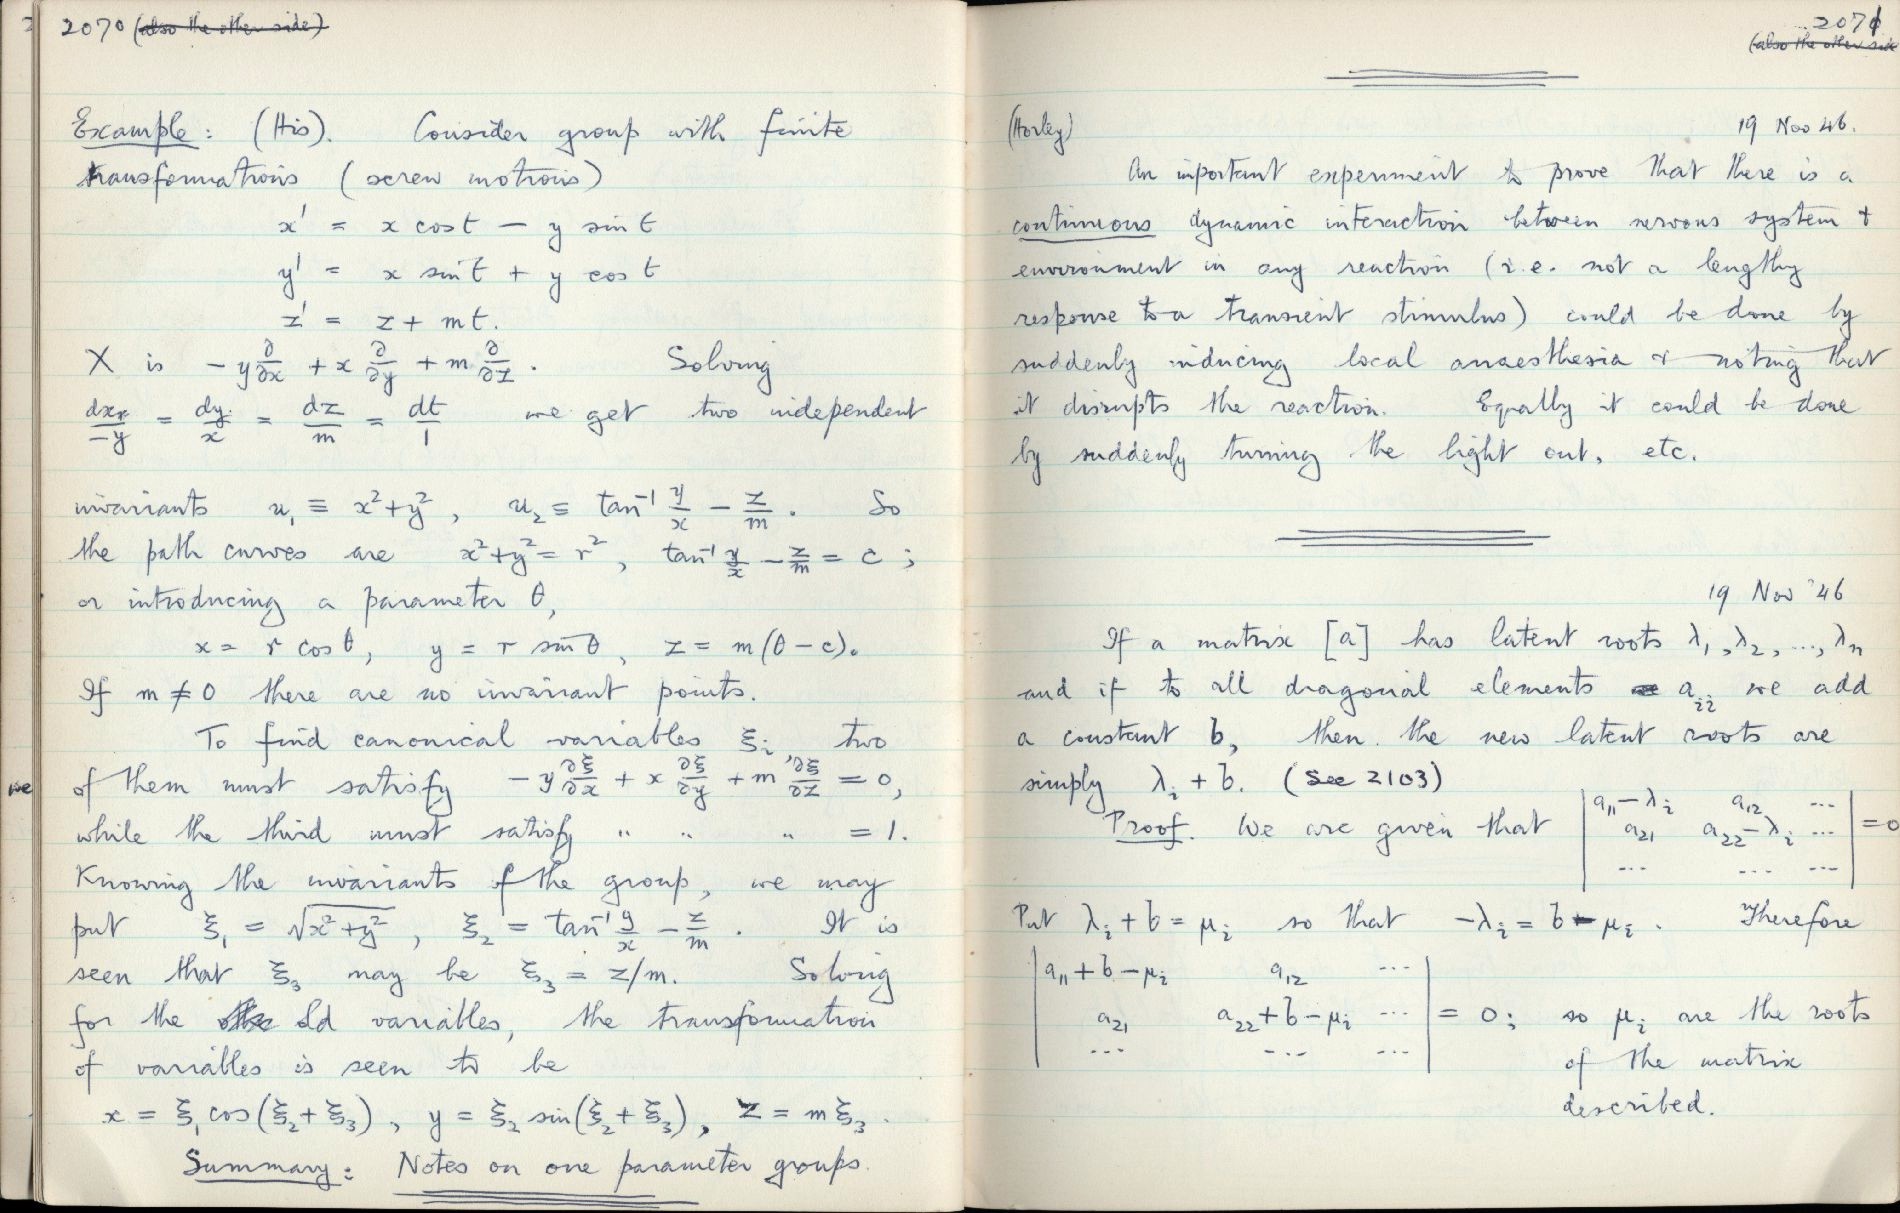 2070 (also the other side)
Example: (His). Consider group with finite
transformations (screw motions)
x' = x cos t − y sin t
y' = x sin t + y cos t
z' = z + mt.
X is −y ∂/∂x + x ∂/∂y + m ∂/∂z. Solving
dx/−y = dy/x = dz/m = dt/1 we get two independent
invariants u₁ ≡ x²+y², u₂ ≡ tan⁻¹ y/x − z/m. So
the path curves are x²+y² = r², tan⁻¹ y/x − z/m = c;
or introducing a parameter θ,
x = r cos θ, y = r sin θ, z = m(θ − c).
If m ≠ 0 there are no invariant points.
To find canonical variables ξᵢ, two
of them must satisfy −y ∂ξ/∂x + x ∂ξ/∂y + m ∂ξ/∂z = 0,
while the third must satisfy " " " = 1.
Knowing the invariants of the group, we may
put ξ₁ = √x²+y², ξ₂ = tan⁻¹ y/x − z/m. It is
seen that ξ₃ may be ξ₃ = z/m. Solving
for the old variables, the transformation
of variables is seen to be
x = ξ₁ cos(ξ₂+ξ₃), y = ξ₂ sin(ξ₂+ξ₃), z = mξ₃.
Summary: Notes on one parameter groups.
we
2071
(also the other side
(Horley) 19 Nov 46.
An important experiment to prove that there is a
continuous dynamic interaction between nervous system +
environment in any reaction (i.e. not a lengthy
response to a transient stimulus) could be done by
suddenly inducing local anaesthesia + noting that
it disrupts the reaction. Equally it could be done
by suddenly turning the light out, etc.
19 Nov '46
If a matrix [a] has latent roots λ₁, λ₂, ..., λₙ
and if to all diagonal elements aᵢᵢ we add
a constant b, then the new latent roots are
simply λᵢ + b. (See 2103)
Proof. We are given that | a₁₁−λᵢ a₁₂ ... |
| a₂₁ a₂₂−λᵢ ... | = 0
| ... ... ... |
Put λᵢ + b = μᵢ so that −λᵢ = b − μᵢ. Therefore
| a₁₁+b−μᵢ a₁₂ ... |
| a₂₁ a₂₂+b−μᵢ ... | = 0; so μᵢ are the roots
| ... ... ... | of the matrix
described.